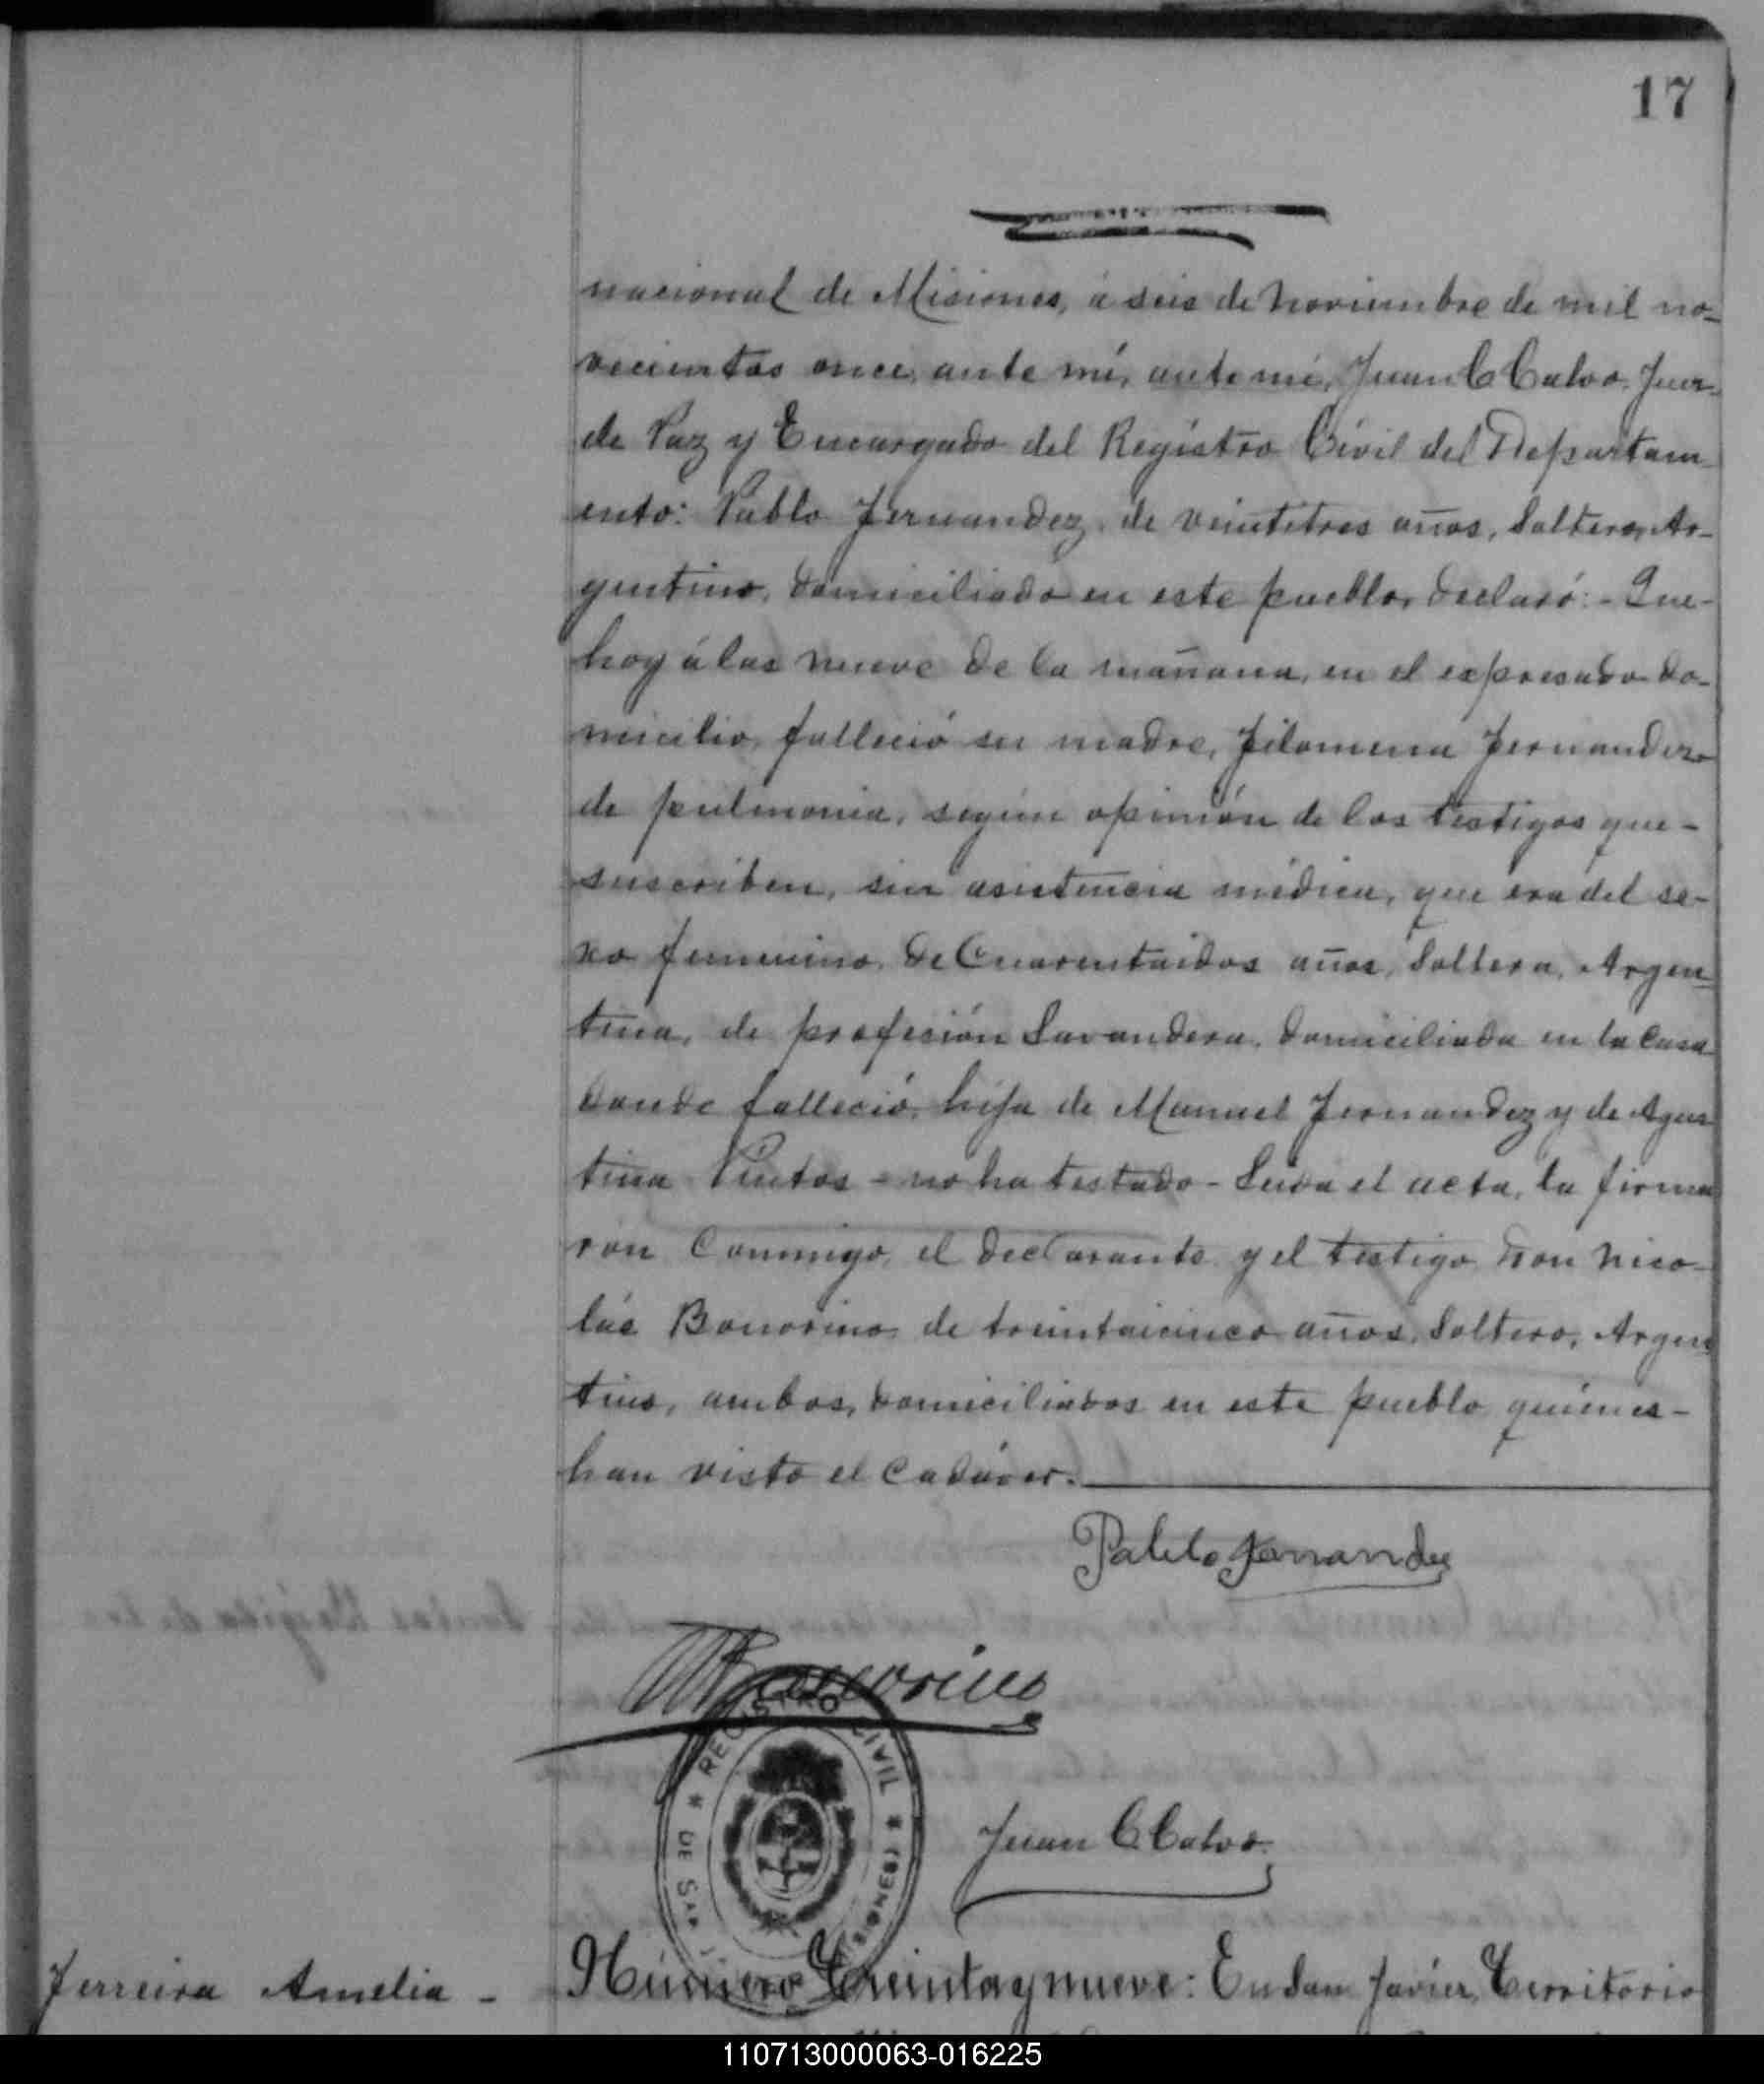 17
nacional de Misiones, á seis de Noviembre de mil no-
vecientos once, ante mí, ante mí, Juan C Calvo, Juez
de Paz y Encargado del Registro Civil del Departam-
ento: Pablo Fernandez, de veintitres años, Soltero, Ar-
gentino, domiciliado en este pueblo, declaró: - Que-
hoy á las nueve de la mañana, en el expresado do-
micilio, falleció su madre, Filomena Fernandez
de pulmonia, según opinión de los testigos que-
suscriben, sin asistencia médica, que era del se-
xo femenino, de Cuarentaidos años, Soltera, Argen-
tina, de profesión Lavandera, domiciliada en la Casa
donde falleció, hija de Manuel Fernandez y de Agus
tina Pintos - no ha testado - Leida el acta, la firma
ron Conmigo, el declarante y el testigo Don Nico-
lás Bonorino, de treintaicinco años, Soltero, Argen
tino, ambos, domiciliados en este pueblo, quiénes-
han visto el Cadáver.
Pablo Fernandez
NBonorino
REGISTRO CIVIL
DE SAN
Juan C. Calvo
Ferreira Amelia -
Número Treintaynueve: En San Javier, Territorio
110713000063-016225